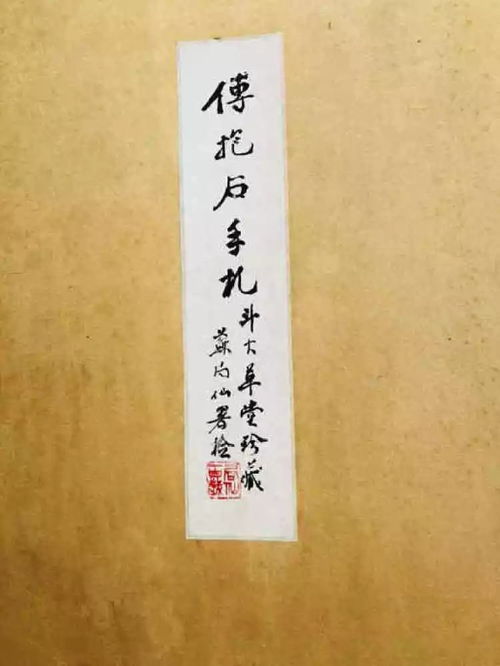 傅抱石手札
斗大草堂珍藏
蘇局仙署捡